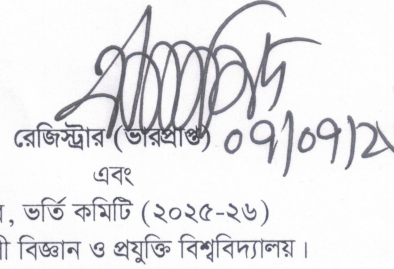 রেজিস্ট্রার (ভারপ্রাপ্ত) ০৭/০৭/২
এবং
, ভর্তি কমিটি (২০২৫-২৬)
বিজ্ঞান ও প্রযুক্তি বিশ্ববিদ্যালয়।